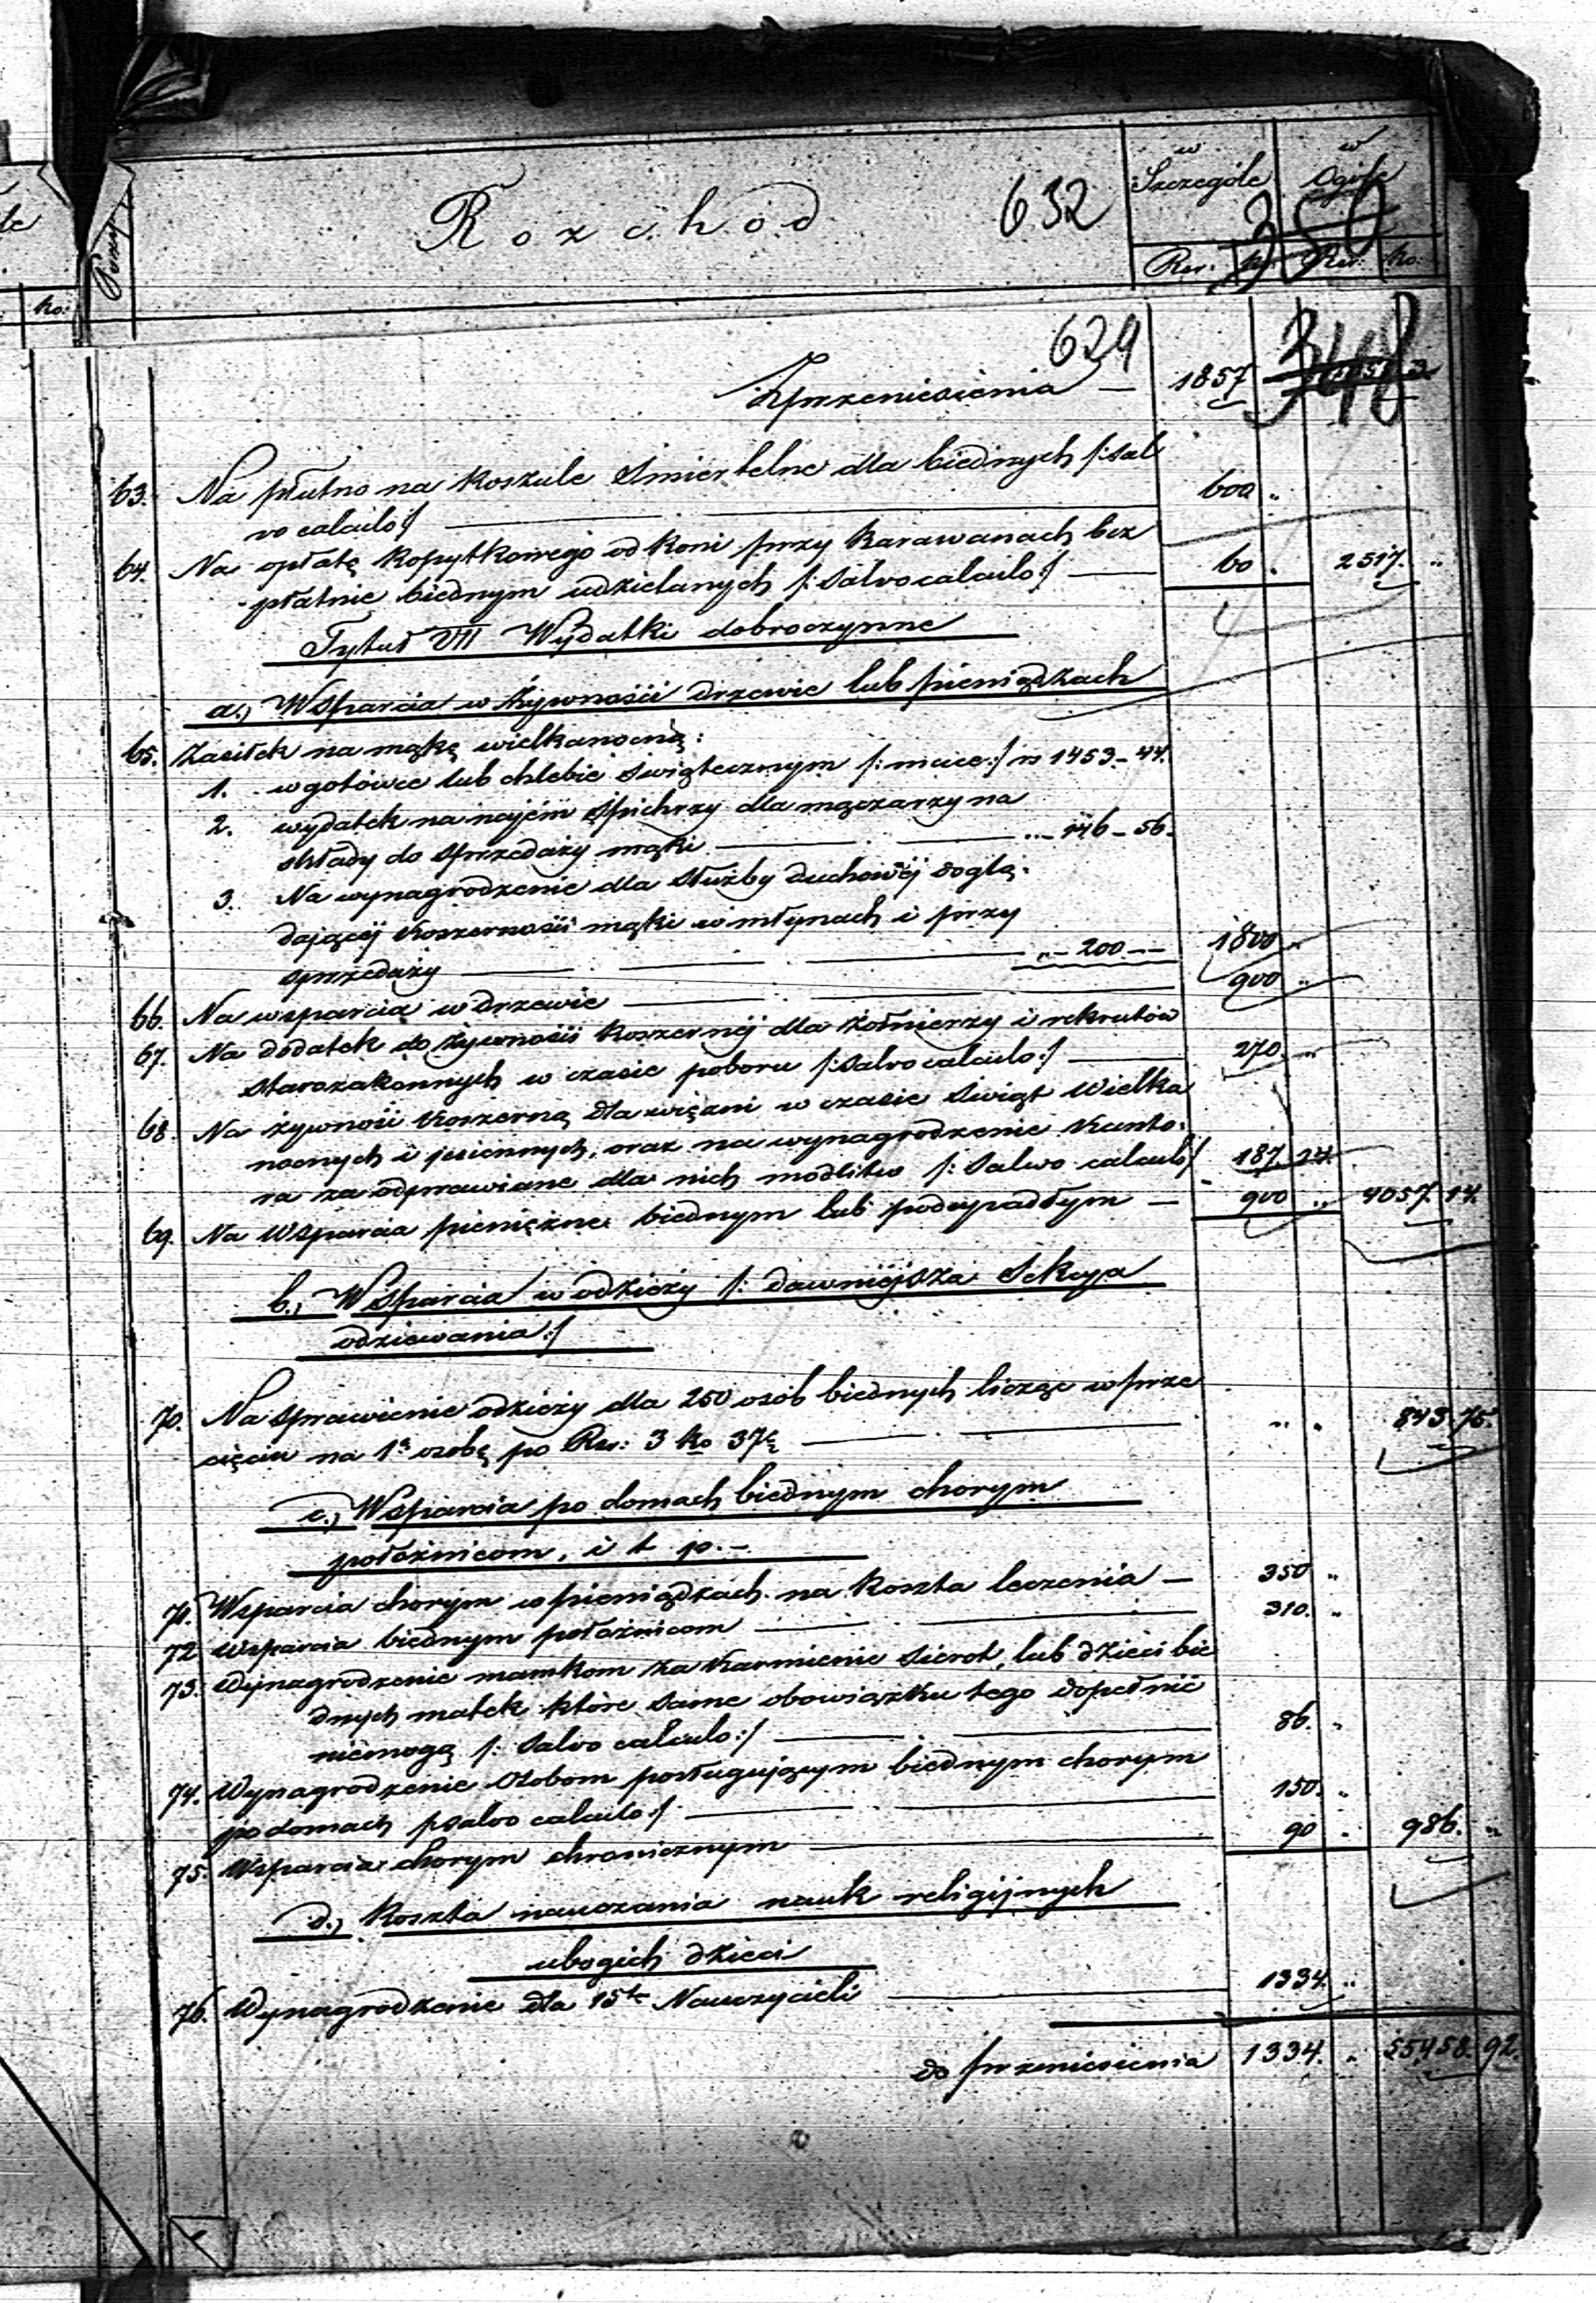 le
ko:
Pozy
Rozchód
632
w Szczególe
w Ogóle
350
Rsr. Rsr. ko.
629
348
Z przeniesienia — 1857
63. Na płutno na koszule śmiertelne dla biednych /: sal
vo calculo :/ 600 "
64. Na opłatę kopytkowego od koni przy karawanach bez
płatnie biednym udzielanych /: Salvo calculo :/ — 60 . 2517. "
Tytuł VII Wydatki dobroczynne
a.) Wsparcia w żywności drzewie lub pieniądzach
65. Zasiłek na mąkę wielkanocną:
1. w gotówce lub chlebie świątecznym /: mace :/ rs 1453 – 44.
2. wydatek na najem spichrzy dla mączarzy na
składy do sprzedaży mąki — " – 146 – 56.
3. Na wynagrodzenie dla służby duchowéj doglą-
dającéj koszerności mąki w młynach i przy
sprzedaży — " – 200 – – 1800 "
66. Na wsparcia w drzewie — 900 "
67. Na dodatek do żywności koszernéj dla żołnierzy i rekrutów
starozakonnych w czasie poboru /: Salvo calculo :/ — 270 "
68. Na żywność koszerną dla więzni w czasie świąt Wielka
nocnych i jesiennych, oraz na wynagrodzenie Kanto-
ra za odprawiane dla nich modlitw /: Salwo calculo :/ 187. 24.
69. Na Wsparcia pieniężne biednym lub podupadłym — 900 " 4057. 14.
b.) Wsparcia w odzieży /: dawniéjsza Sekcya
odziewania :/
70. Na sprawienie odzieży dla 250 osób biednych licząc w prze
cięciu na 1ą osobę po Rsr: 3 ko 37½ — " " 843. 75.
c.) Wsparcia po domach biednym chorym
położnicom, i t. p. –
71. Wsparcia chorym w pieniądzach na koszta leczenia — 350 "
72. Wsparcia biednym położnicom — 310. "
73. Wynagrodzenie mamkom za karmienie sierot, lub dzieci bie
dnych matek które same obowiązku tego dopełnić
niemogą /: Salvo calculo :/ — 86. "
74. Wynagrodzenie Osobom posługującym biednym chorym
po domach /: Salvo calculo :/ — 150. "
75. Wsparcia chorym chronicznym — 90 " 986. "
d.) Koszta nauczania nauk religijnych
ubogich dzieci
76. Wynagrodzenie dla 15tu Nauczycieli — 1334. "
do przeniesienia 1334. " 55458. 92.